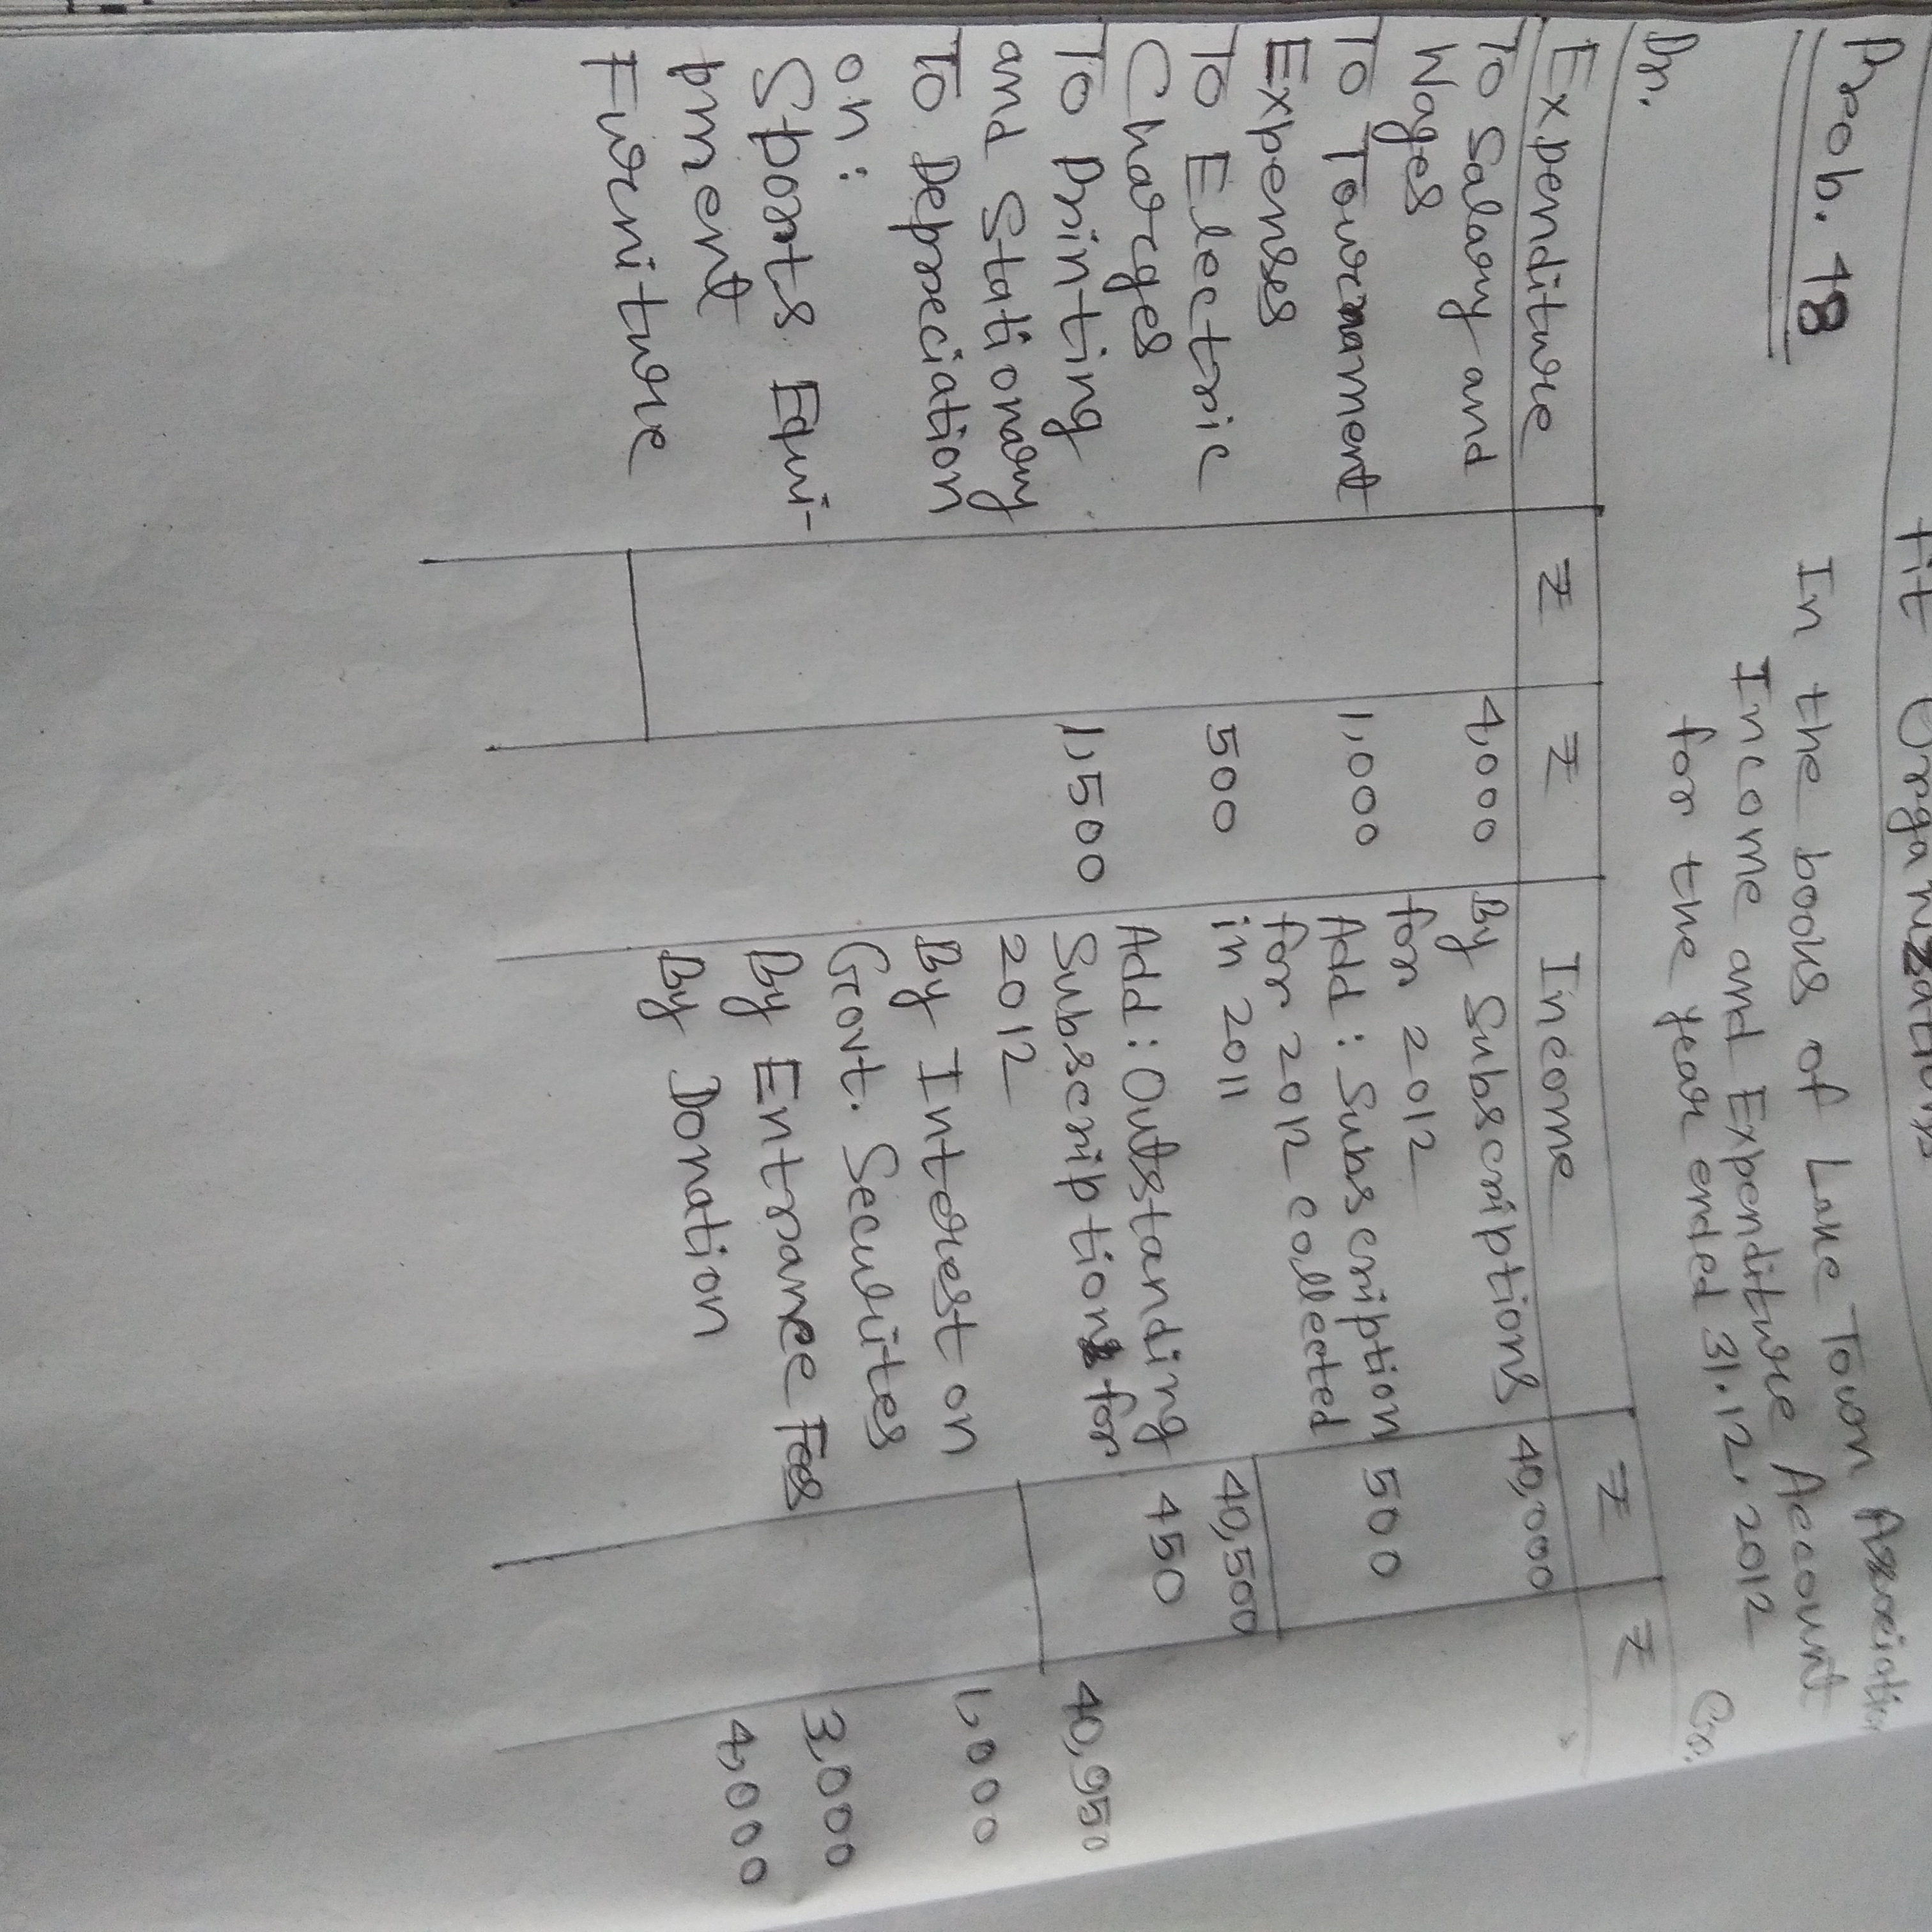 fit Organizations
Prob. 18
In the books of Lake Town Association
Income and Expenditure Account
for the year ended 31.12.2012
Dr.
Cr.
Expenditure ₹ ₹ Income ₹ ₹
To Salary and 4,000 By Subscriptions 40,000
Wages for 2012
To Tournament 1,000 Add: Subscription 500
Expenses for 2012 collected
To Electric 500 in 2011 40,500
Charges Add: Outstanding 450
To Printing 1,500 Subscription for 40,950
and Stationary 2012
To Depreciation By Interest on 1,000
on: Govt. Securites
Sports Equi- By Entrance Fees 3,000
pment By Donation 4,000
Furniture